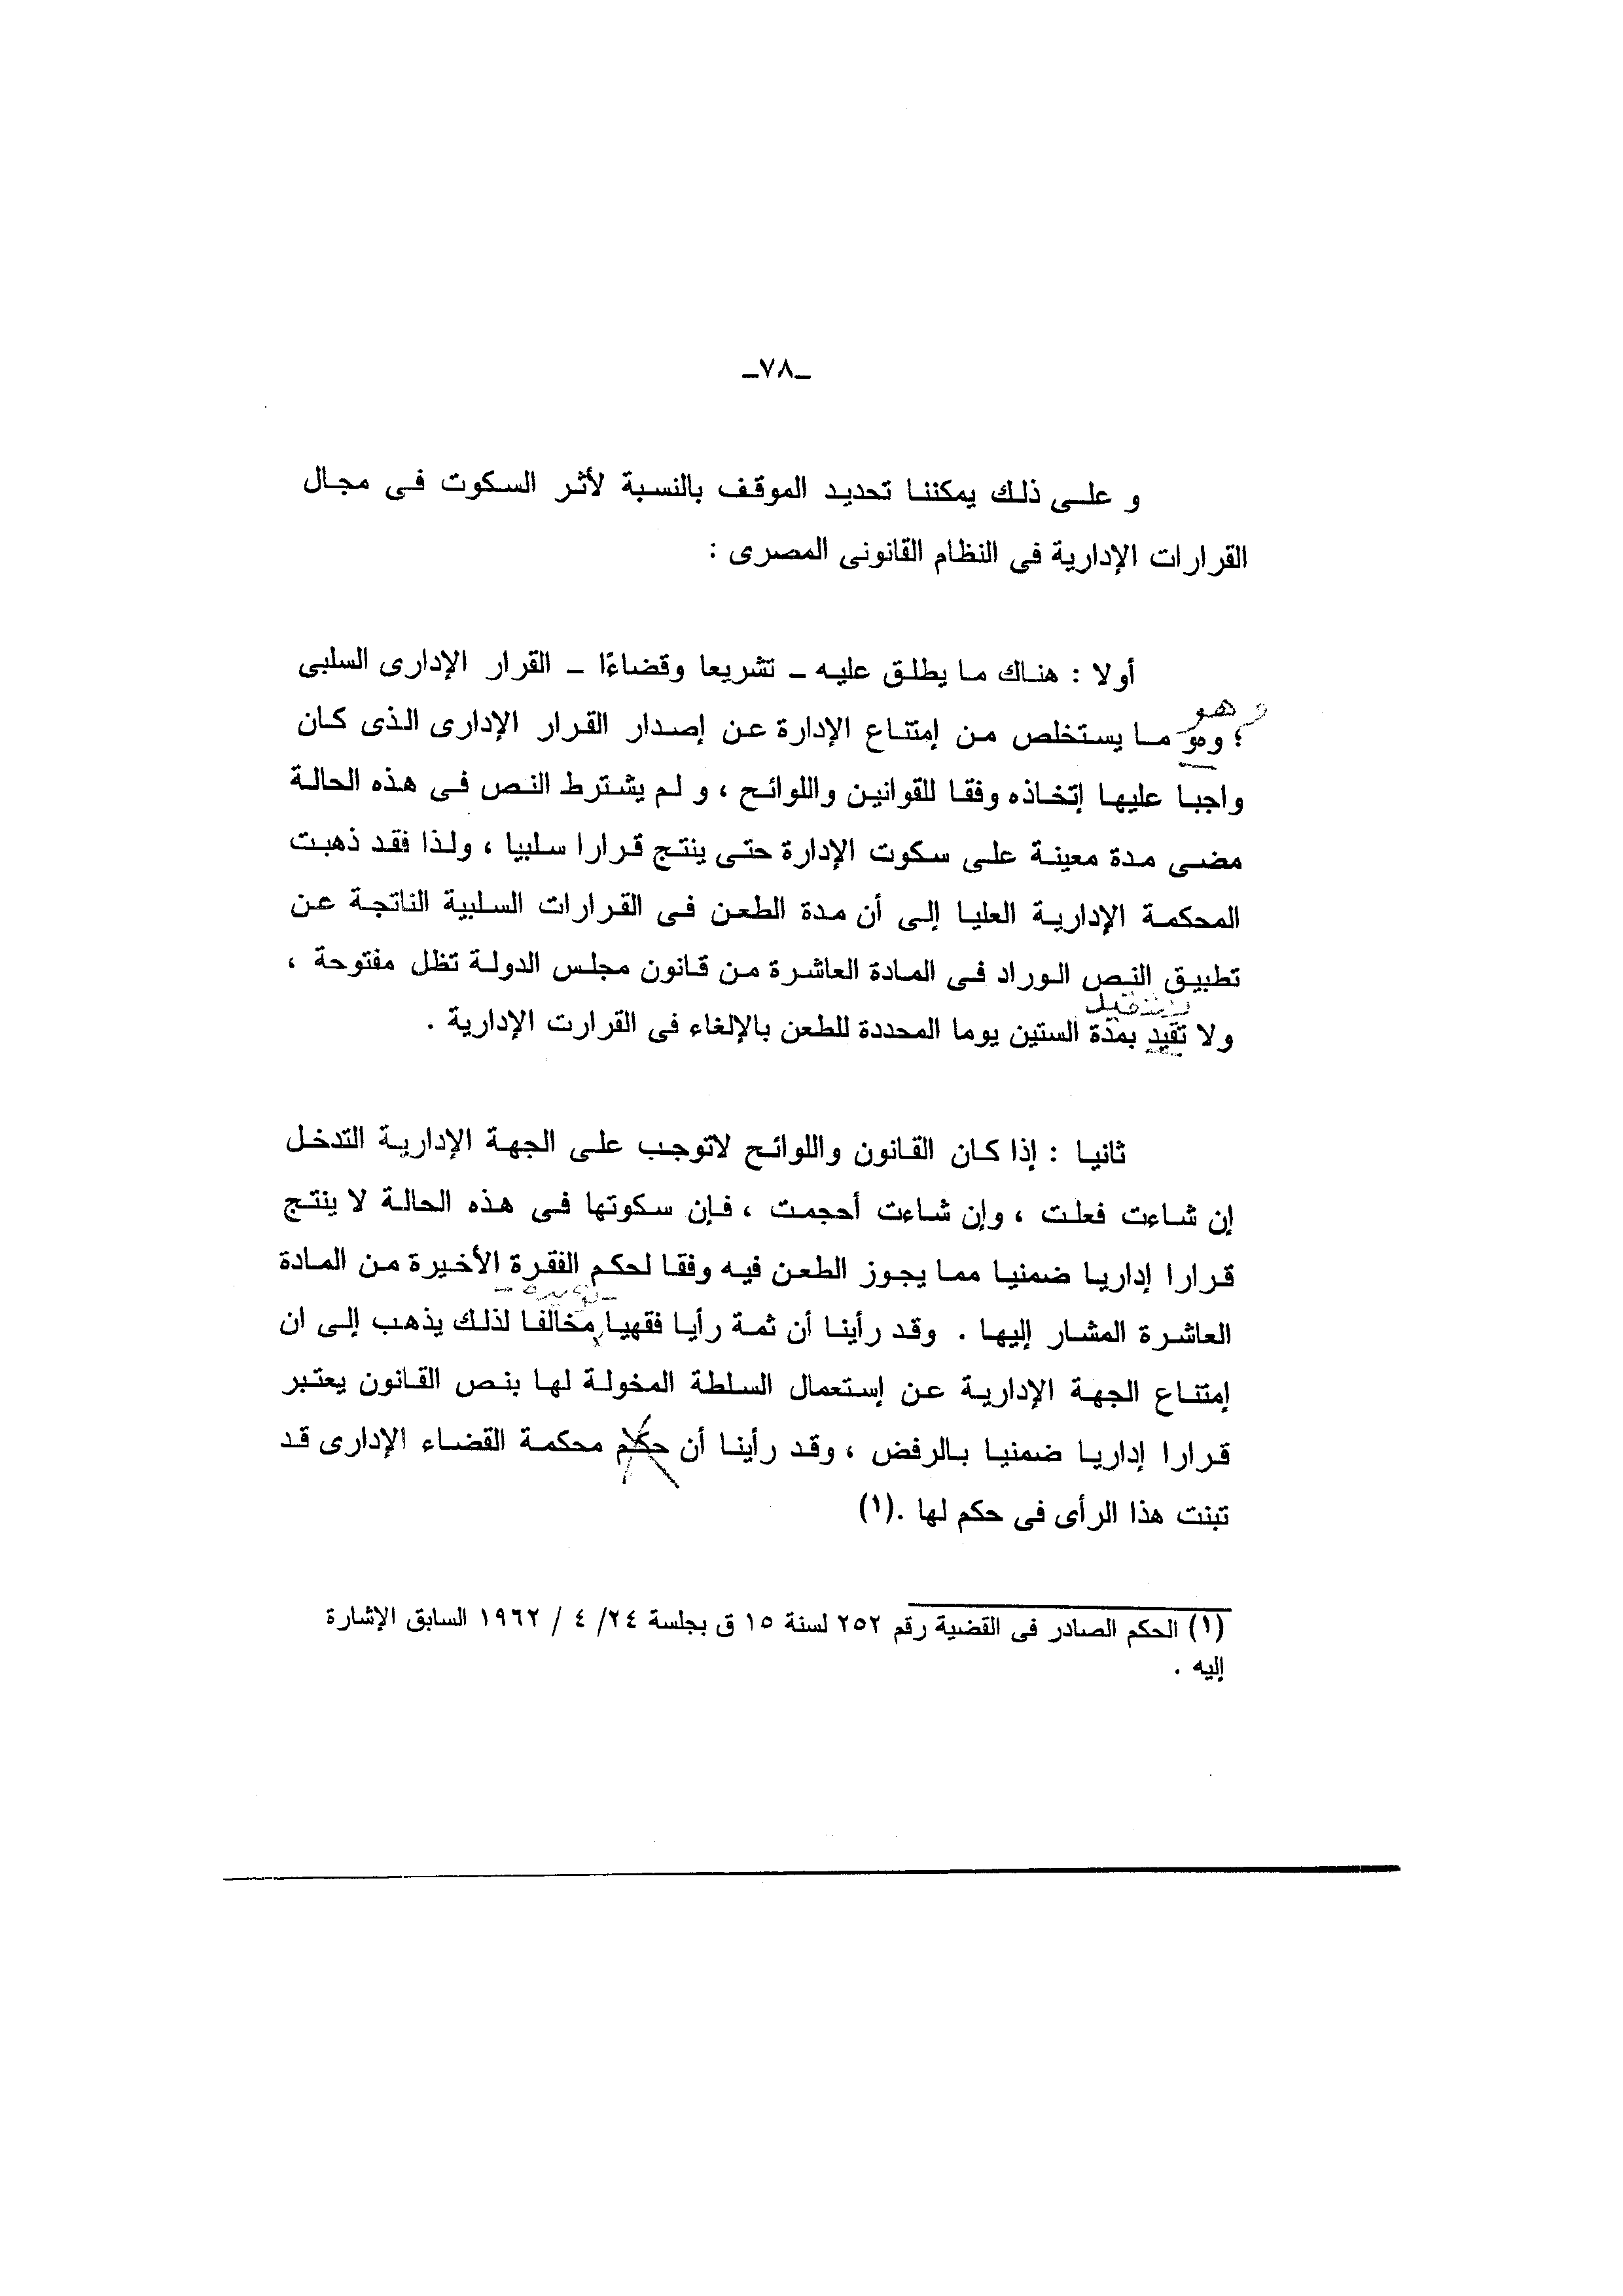 _٧٨_
و على ذلك يمكننا تحديد الموقف بالنسبة لأثر السكوت فى مجال
القرارات الإدارية فى النظام القانونى المصرى :
أولا : هناك ما يطلق عليه _ تشريعا وقضاءًا _ القرار الإدارى السلبى
وهو
؛ وهو ما يستخلص من إمتناع الإدارة عن إصدار القرار الإدارى الذى كان
واجبا عليها إتخاذه وفقا للقوانين واللوائح ، و لم يشترط النص فى هذه الحالة
مضى مدة معينة على سكوت الإدارة حتى ينتج قرارا سلبيا ، ولذا فقد ذهبت
المحكمة الإدارية العليا إلى أن مدة الطعن فى القرارات السلبية الناتجة عن
تطبيق النص الوراد فى المادة العاشرة من قانون مجلس الدولة تظل مفتوحة ،
ولا تقيد بمدة الستين يوما المحددة للطعن بالإلغاء فى القرارت الإدارية .
ثانيا : إذا كان القانون واللوائح لاتوجب على الجهة الإدارية التدخل
إن شاءت فعلت ، وإن شاءت أحجمت ، فإن سكوتها فى هذه الحالة لا ينتج
قرارا إداريا ضمنيا مما يجوز الطعن فيه وفقا لحكم الفقرة الأخيرة من المادة
العاشرة المشار إليها . وقد رأينا أن ثمة رأيا فقهيا مخالفا لذلك يذهب إلى ان
إمتناع الجهة الإدارية عن إستعمال السلطة المخولة لها بنص القانون يعتبر
قرارا إداريا ضمنيا بالرفض ، وقد رأينا أن حكم محكمة القضاء الإدارى قد
تبنت هذا الرأى فى حكم لها .(١)
(١) الحكم الصادر فى القضية رقم ٢٥٢ لسنة ١٥ ق بجلسة ٢٤/ ٤ / ١٩٦٢ السابق الإشارة
إليه .